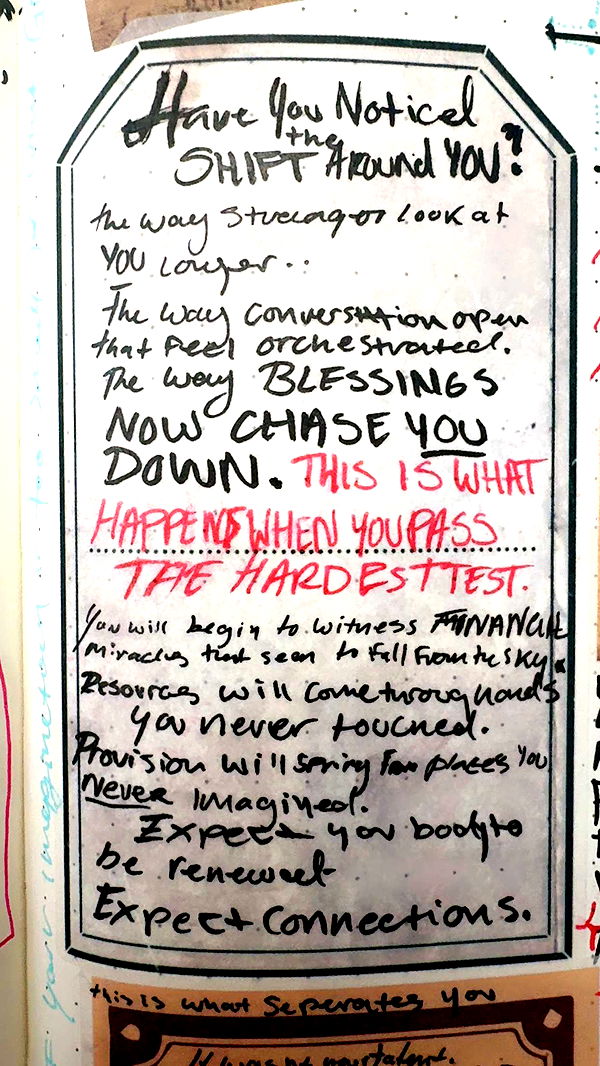 Have You Noticed
the
SHIFT Around YOU?
the way strangers look at
YOU Longer..
The way conversation open
that Feel orchestrated.
The way BLESSINGS
NOW CHASE YOU
DOWN. THIS IS WHAT
HAPPENS WHEN YOU PASS
THE HARDEST TEST.
You will begin to witness FINANCIAL
miracles that seem to fall From the SKY.
Resources will come through hands
you never touched.
Provision will spring From places You
Never Imagined.
Expect you body to
be renewed
Expect Connections.
this is what seperates you
talent.